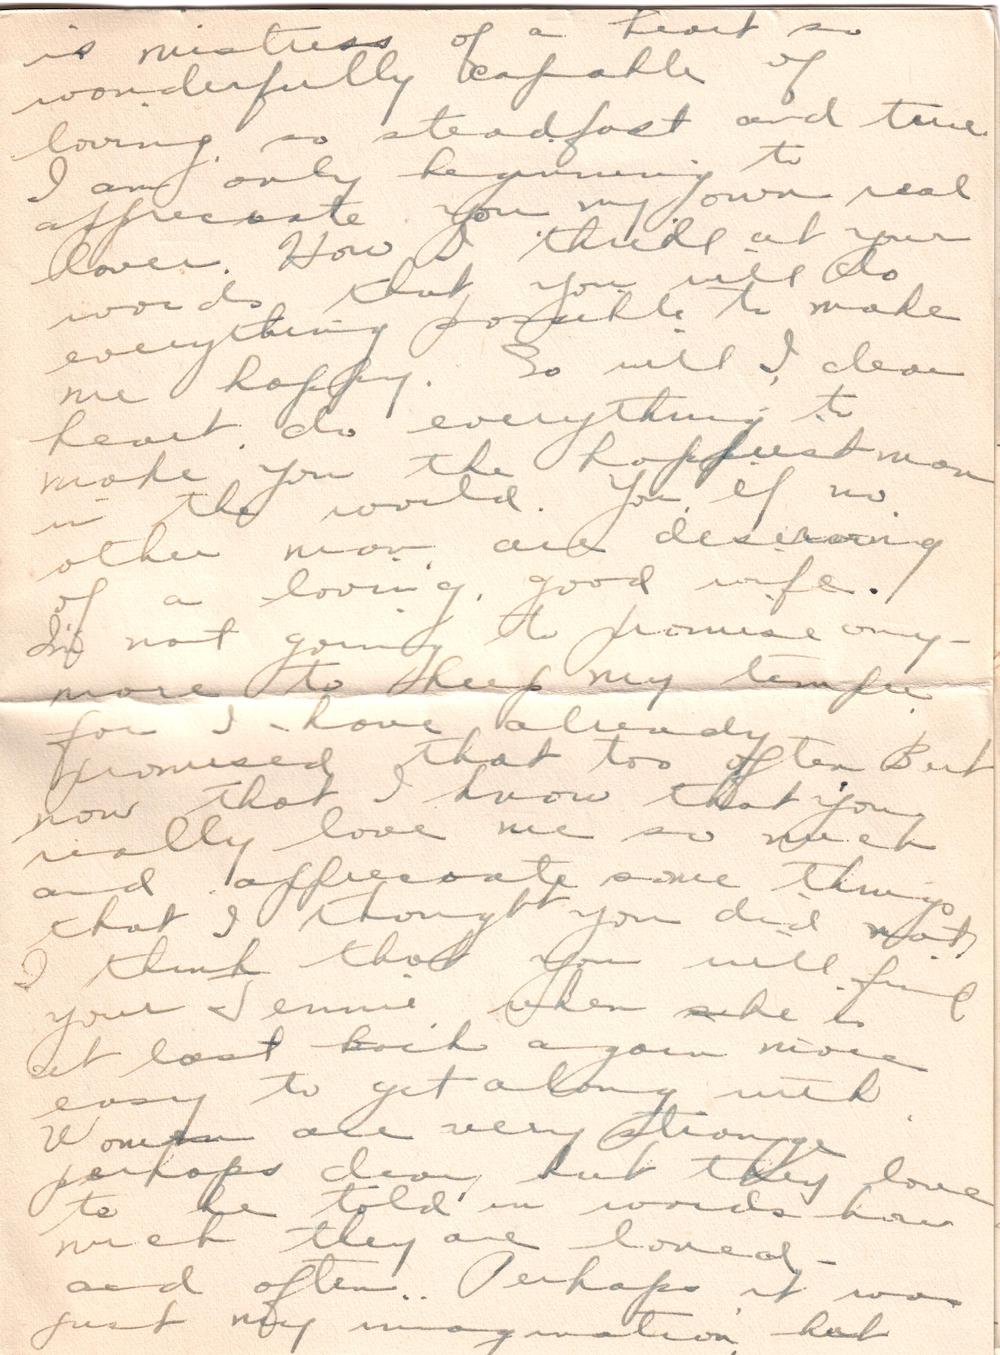 is mistress of a heart so
wonderfully capable of
loving, so steadfast and true
I am only beginning to
appreciate you my own real
lover. How I thrill at your
words that you will do
everything possible to make
me happy. So will I, dear
heart, do everything to
make you the happiest man
in the world. You, if no
other man, are deserving
of a loving, good wife.
I'm not going to promise any-
more to keep my temper
for I have already
promised that too often But
now that I know that you
really love me so much
and appreciate some things
that I thought you did not,
I think that you will find
your Jennie, when she is
at last back again more
easy to get along with.
Women are very strange
perhaps dear, but they love
to be told in words how
much they are loved -
and often.. Perhaps it was
just my imagination, but